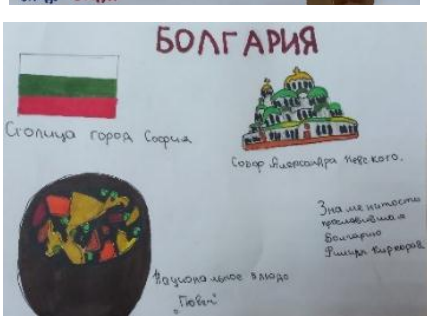 БОЛГАРИЯ
Столица город София
Собор Александра Невского.
Знаменитость
прославившая
Болгарию
Филипп Киркоров
Национальное блюдо
"Гювеч"